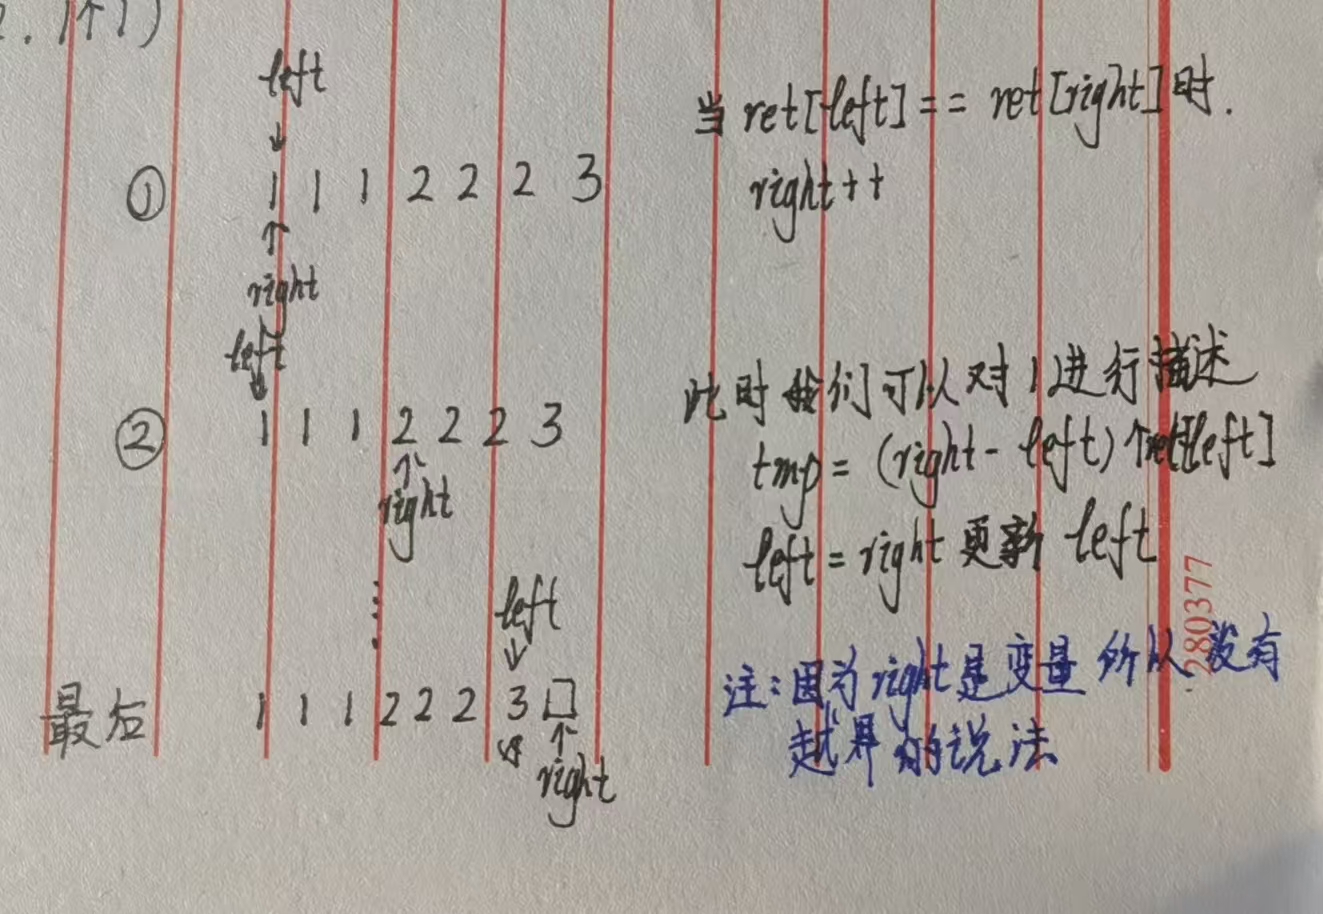 2. 1个1)
left
↓
① 1 1 1 2 2 2 3
↑
right
当 ret[left] == ret[right] 时.
right++
left
↓
② 1 1 1 2 2 2 3
↑
right
此时我们可以对1进行描述
tmp = (right - left) 个ret[left]
left = right 更新 left
⋮
left
↓
最后 1 1 1 2 2 2 3 □
↑
right
注:因为right是变量 所以没有
越界的说法
280377